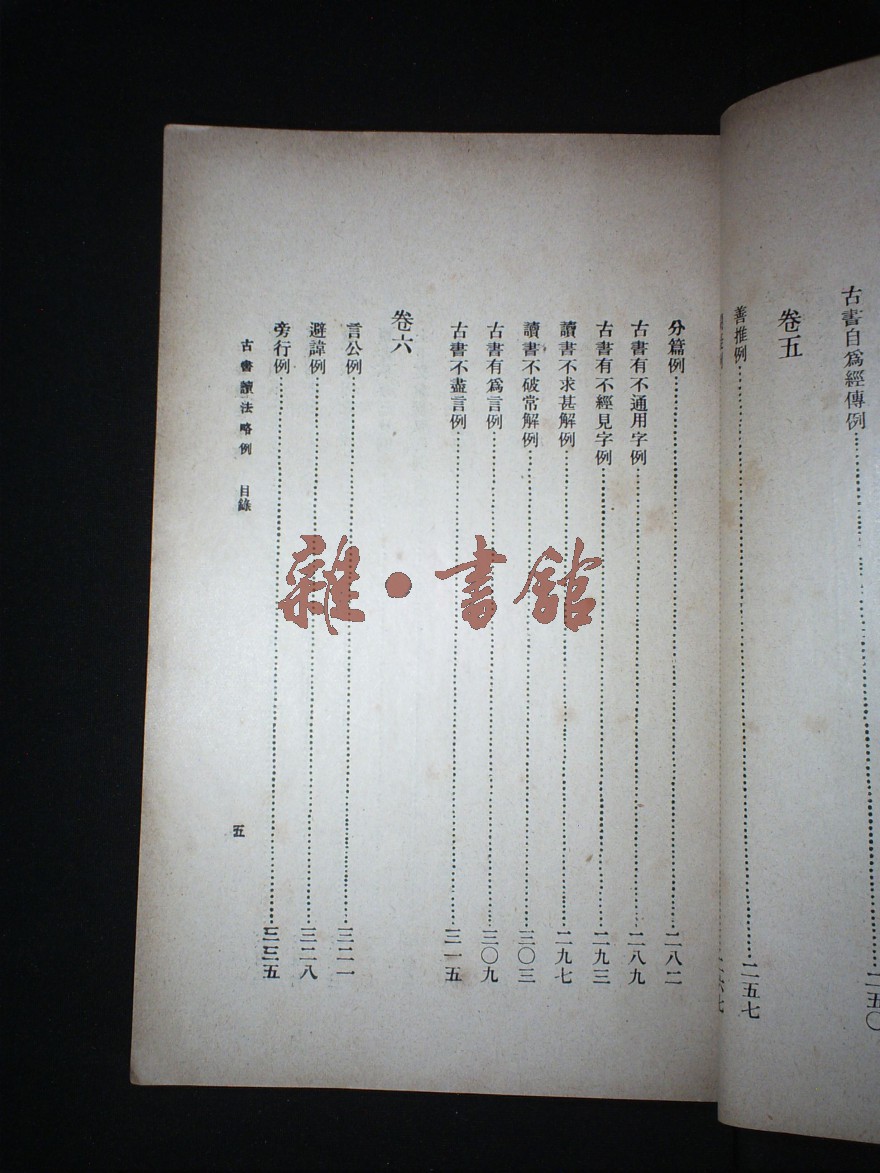 古書自爲經傳例……二五〇
卷五
善推例……二五七
分篇例……二八二
古書有不通用字例……二八九
古書有不經見字例……二九三
讀書不求甚解例……二九七
讀書不破常解例……三〇三
古書有爲言例……三〇九
古書不盡言例……三一五
卷六
言公例……三二一
避諱例……三二八
旁行例……三三五
古書讀法略例 目錄
五
雜·書館